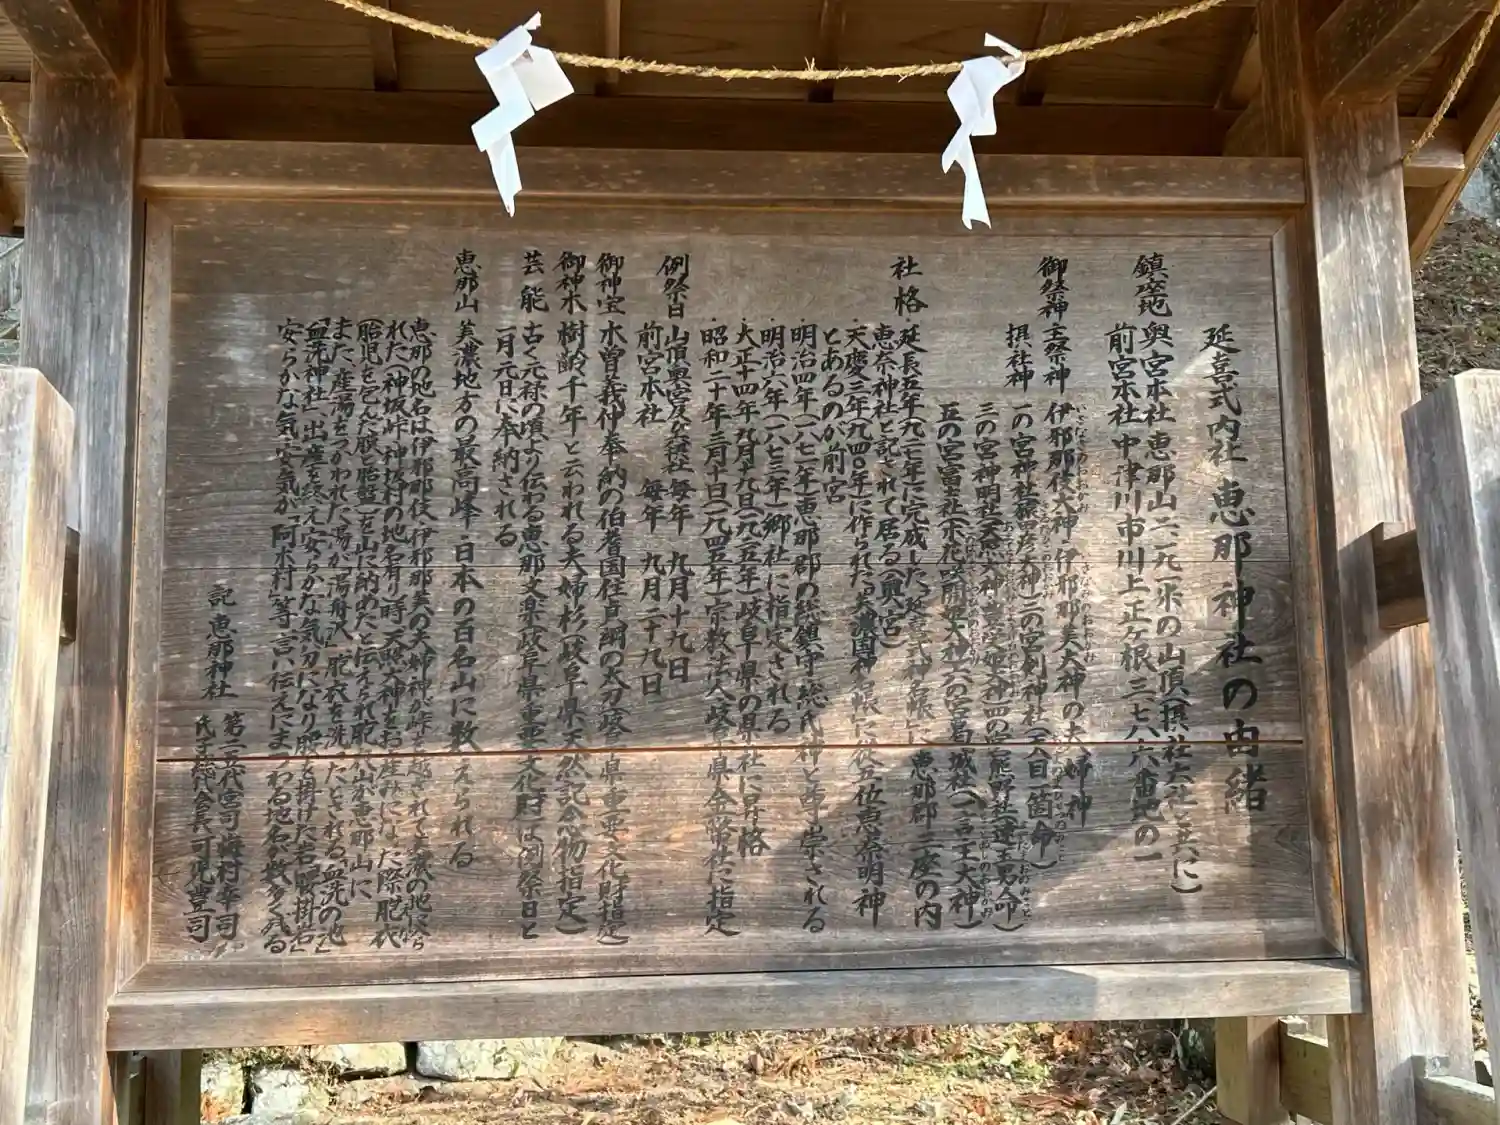 延喜式内社 恵那神社の由緒
鎮座地 奥宮本社 恵那山二、一九一米の山頂(摂社六社と共に)
前宮本社 中津川市川上正ヶ根三七八六番地の一
御祭神 主祭神 伊邪那伎大神・伊邪那美大神の夫婦神
摂社神 一の宮神社(猿田彦大神)二の宮剣神社(天目一箇命)
三の宮神明社(天照大神・豊受姫大神)四の宮熊野社(速玉男命)
五の宮富士社(木花咲開姫大神)六の宮葛城社(一言主大神)
社格 ・延長五年(九二七年)に完成した「延喜式神名帳」に恵那郡三座の内
恵奈神社と記されて居る(奥宮)
・天慶三年(九四〇年)に作られた「美濃国神名帳」に従五位恵奈明神
とあるのが前宮
・明治四年(一八七一年)恵那郡の総鎮守・総氏神と尊崇される
・明治六年(一八七三年)郷社に指定される
・大正十四年九月十九日(一九二五年)岐阜県の県社に昇格
・昭和二十年三月十日(一九四五年)宗教法人岐阜県金幣社に指定
例祭日 山頂奥宮及び六社 毎年 九月十九日
前宮本社 毎年 九月二十九日
御神宝 木曽義仲奉納の伯耆国住真綱の太刀(岐阜県重要文化財指定)
御神木 樹齢千年と云われる夫婦杉(岐阜県天然記念物指定)
芸能 古く元禄の頃より伝わる恵那文楽(岐阜県重要文化財)は例祭日と
一月元日に奉納される
恵那山 美濃地方の最高峰・日本の百名山に数えられる
恵那の地名は伊邪那伎・伊邪那美の夫婦神が峠を越されて美濃の地に入ら
れた(神坂峠・神坂村の地名有り)時、天照大神をお産みになった際胞衣
(胎児を包んだ膜と胎盤)を山に納めたと伝えられ胞衣山が恵那山に
また、産湯をつかわれた「湯が湯舟沢」胞衣を洗ったとされる「血洗の池」
「血洗神社」出産を終え安らかな気分になり腰を掛けた岩「腰掛岩」
安らかな気・安気が「阿木村」等、言い伝えにまつわる地名が数多く残る
記 恵那神社 第二五代宮司 梅村幸司
氏子総代会長 可児豊司